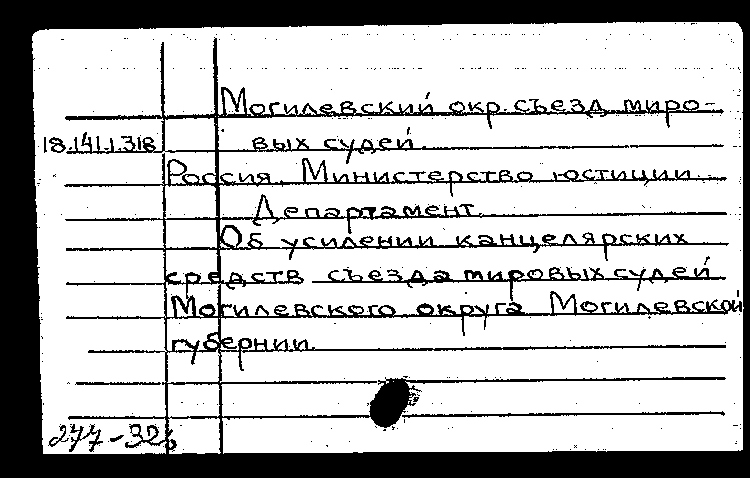 Могилевский окр. съезд миро-
18.141.1.318 вых судей.
Россия. Министерство юстиции.
Департамент.
Об усилении канцелярских
средств съезда мировых судей
Могилевского округа Могилевской
губернии.